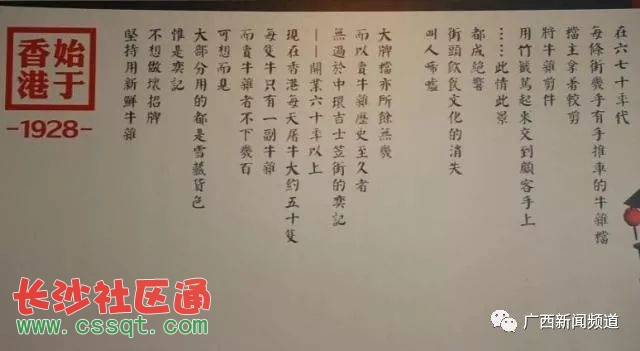 在六七十年代
每條街幾乎有手推車的牛雜檔
檔主拿着鉸剪
將牛雜剪件
用竹籤篤起來交到顧客手上
……此情此景
都成絕響
街頭飲食文化的消失
叫人唏噓
大牌檔亦所餘無幾
而以賣牛雜歷史至久者
無過於中環吉士笠街的奕記
——開業六十年以上
現在香港每天屠牛大約五十隻
每隻牛只有一副牛雜
而賣牛雜者不下幾百
可想而見
大部分用的都是雪藏貨色
惟是奕記
不想做壞招牌
堅持用新鮮牛雜
始于
香港
-1928-
长沙社区通
www.cssqt.com
广西新闻频道